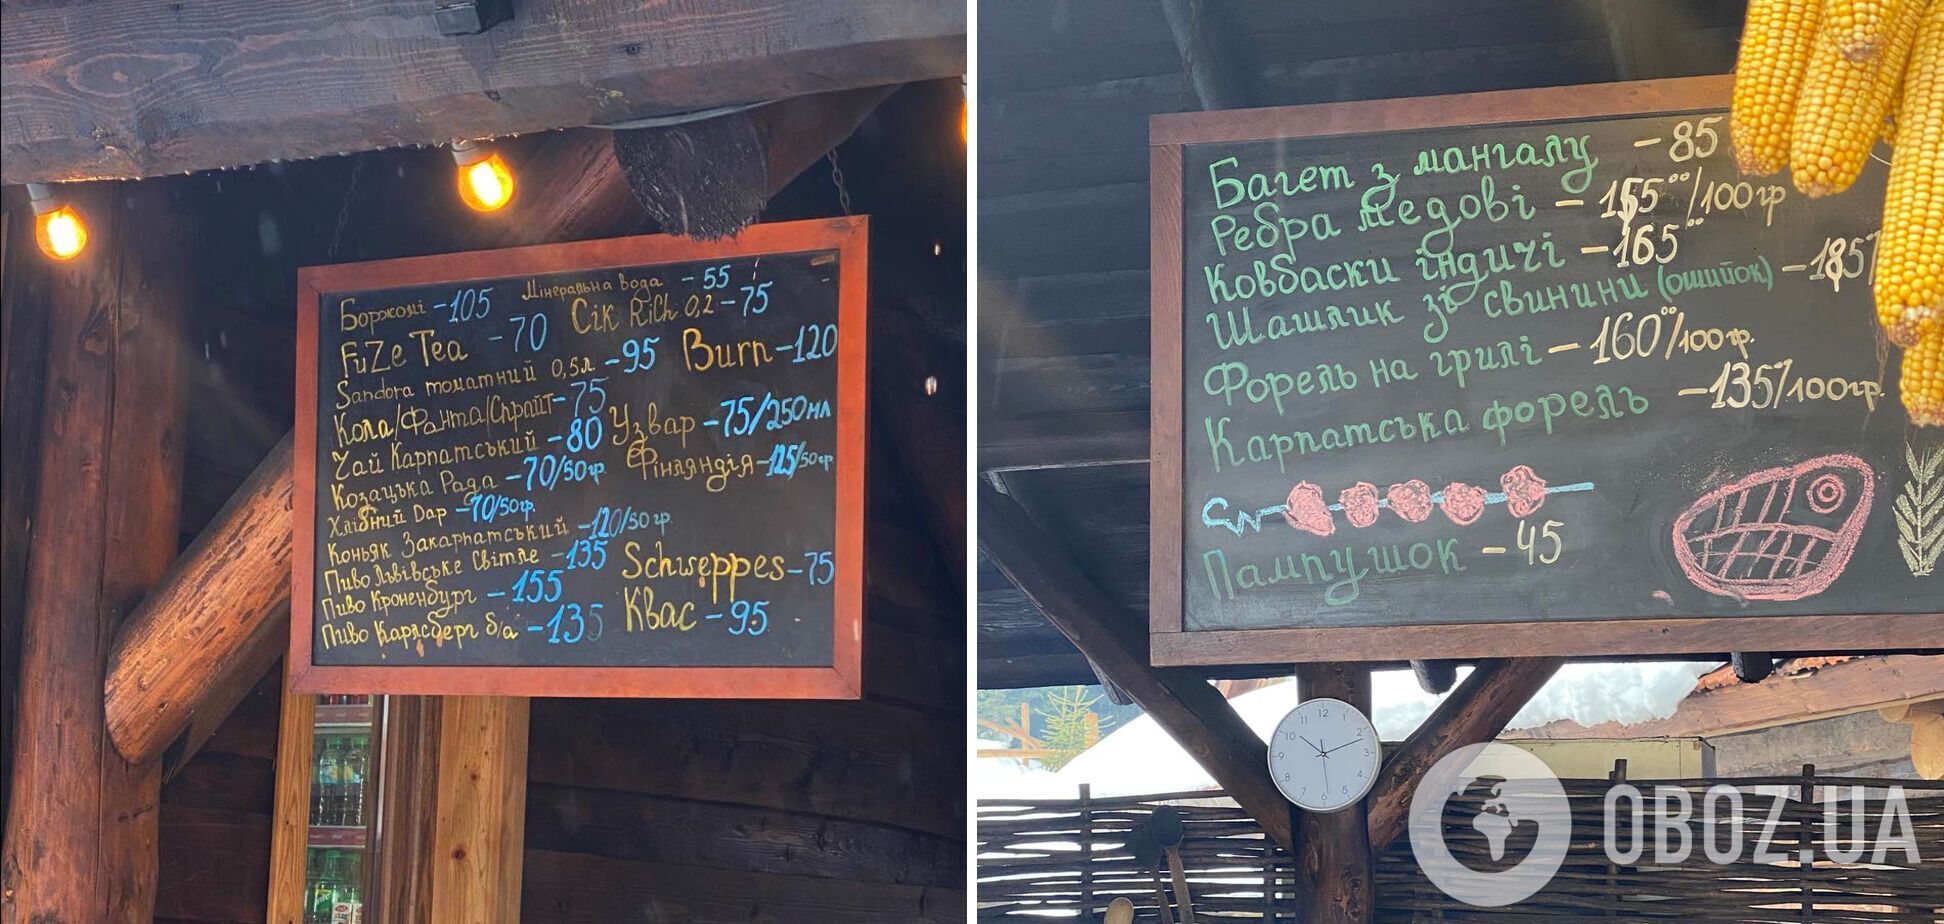 Мінеральна вода - 55
Боржомі - 105
Сік RiCh 0,2 - 75
FuZe Tea - 70
Burn - 120
Sandora томатний 0,5л - 95
Кола/Фанта/Спрайт - 75
Узвар - 75/250мл
Чай Карпатський - 80
Фінляндія - 125/50гр.
Козацька Рада - 70/50гр.
Хлібний Дар - 70/50гр.
Коньяк Закарпатський - 120/50гр.
Пиво Львівське Світле - 135
Schweppes - 75
Пиво Кроненбург - 155
Квас - 95
Пиво Карлсберг б/а - 135
Багет з мангалу - 85
Ребра медові - 155°°/100гр
Ковбаски індичі - 165°°
Шашлик зі свинини (ошийок) - 185
Форель на грилі - 160°°/100гр.
Карпатська форель - 135/100гр.
Пампушок - 45
12
1
2
3
4
5
6
7
8
9
10
11
OBOZ.UA